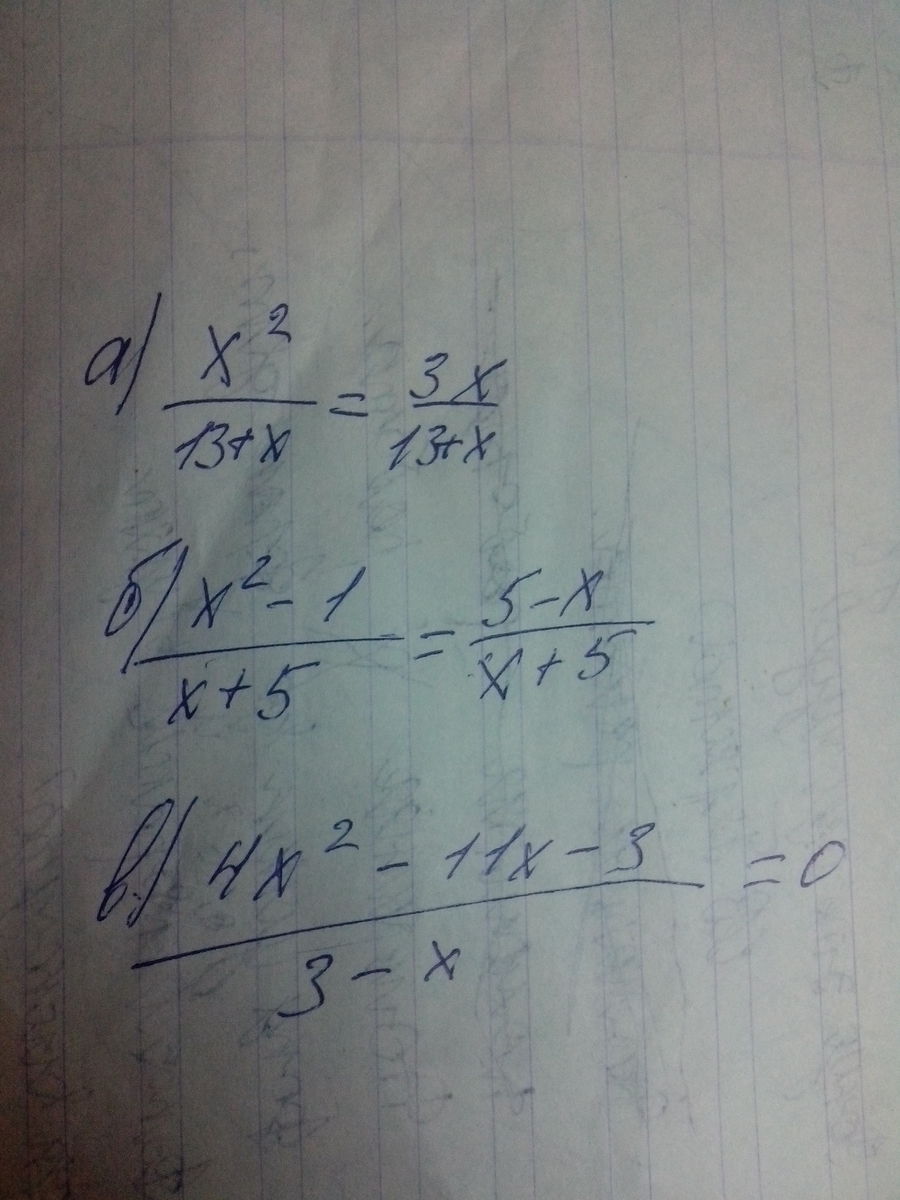 а) x² / 13+x = 3x / 13+x
б) x² - 1 / x+5 = 5-x / x+5
в) 4x² - 11x - 3 / 3 - x = 0